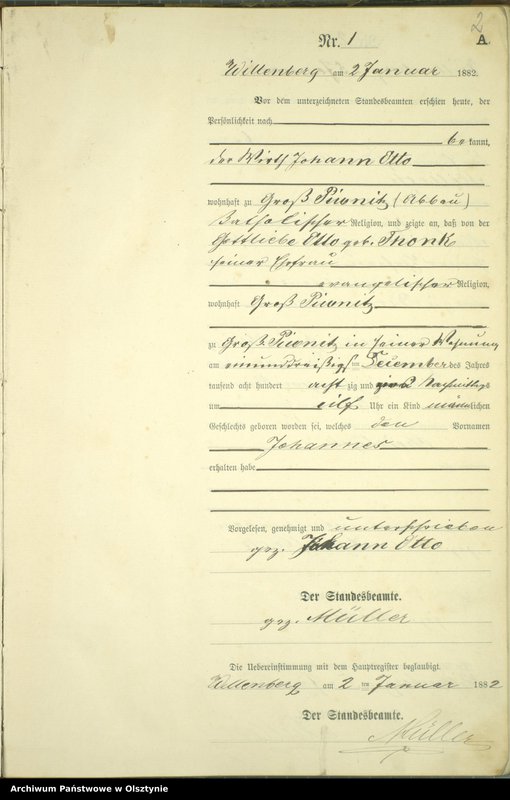 2
Nr. 1 A.
Willenberg am 2 Januar 1882.
Vor dem unterzeichneten Standesbeamten erschien heute, der
Persönlichkeit nach
be kannt,
der Wirth Johann Otto
wohnhaft zu Groß Piwnitz (Abbau)
katholischer Religion, und zeigte an, daß von der
Gottliebe Otto geb. Thonk
seiner Ehefrau
evangelischer Religion,
wohnhaft Groß Piwnitz
zu Groß Piwnitz in seiner Wohnung
am einunddreißigsten Dezember des Jahres
tausend acht hundert acht zig und Nachmittags
um eilf Uhr ein Kind männlichen
Geschlechts geboren worden sei, welches den Vornamen
Johannes
erhalten habe
Vorgelesen, genehmigt und unterschrieben
gez. Johann Otto
Der Standesbeamte.
gez. Müller
Die Uebereinstimmung mit dem Hauptregister beglaubigt.
Willenberg am 2 ten Januar 1882
Der Standesbeamte.
Müller
Archiwum Państwowe w Olsztynie